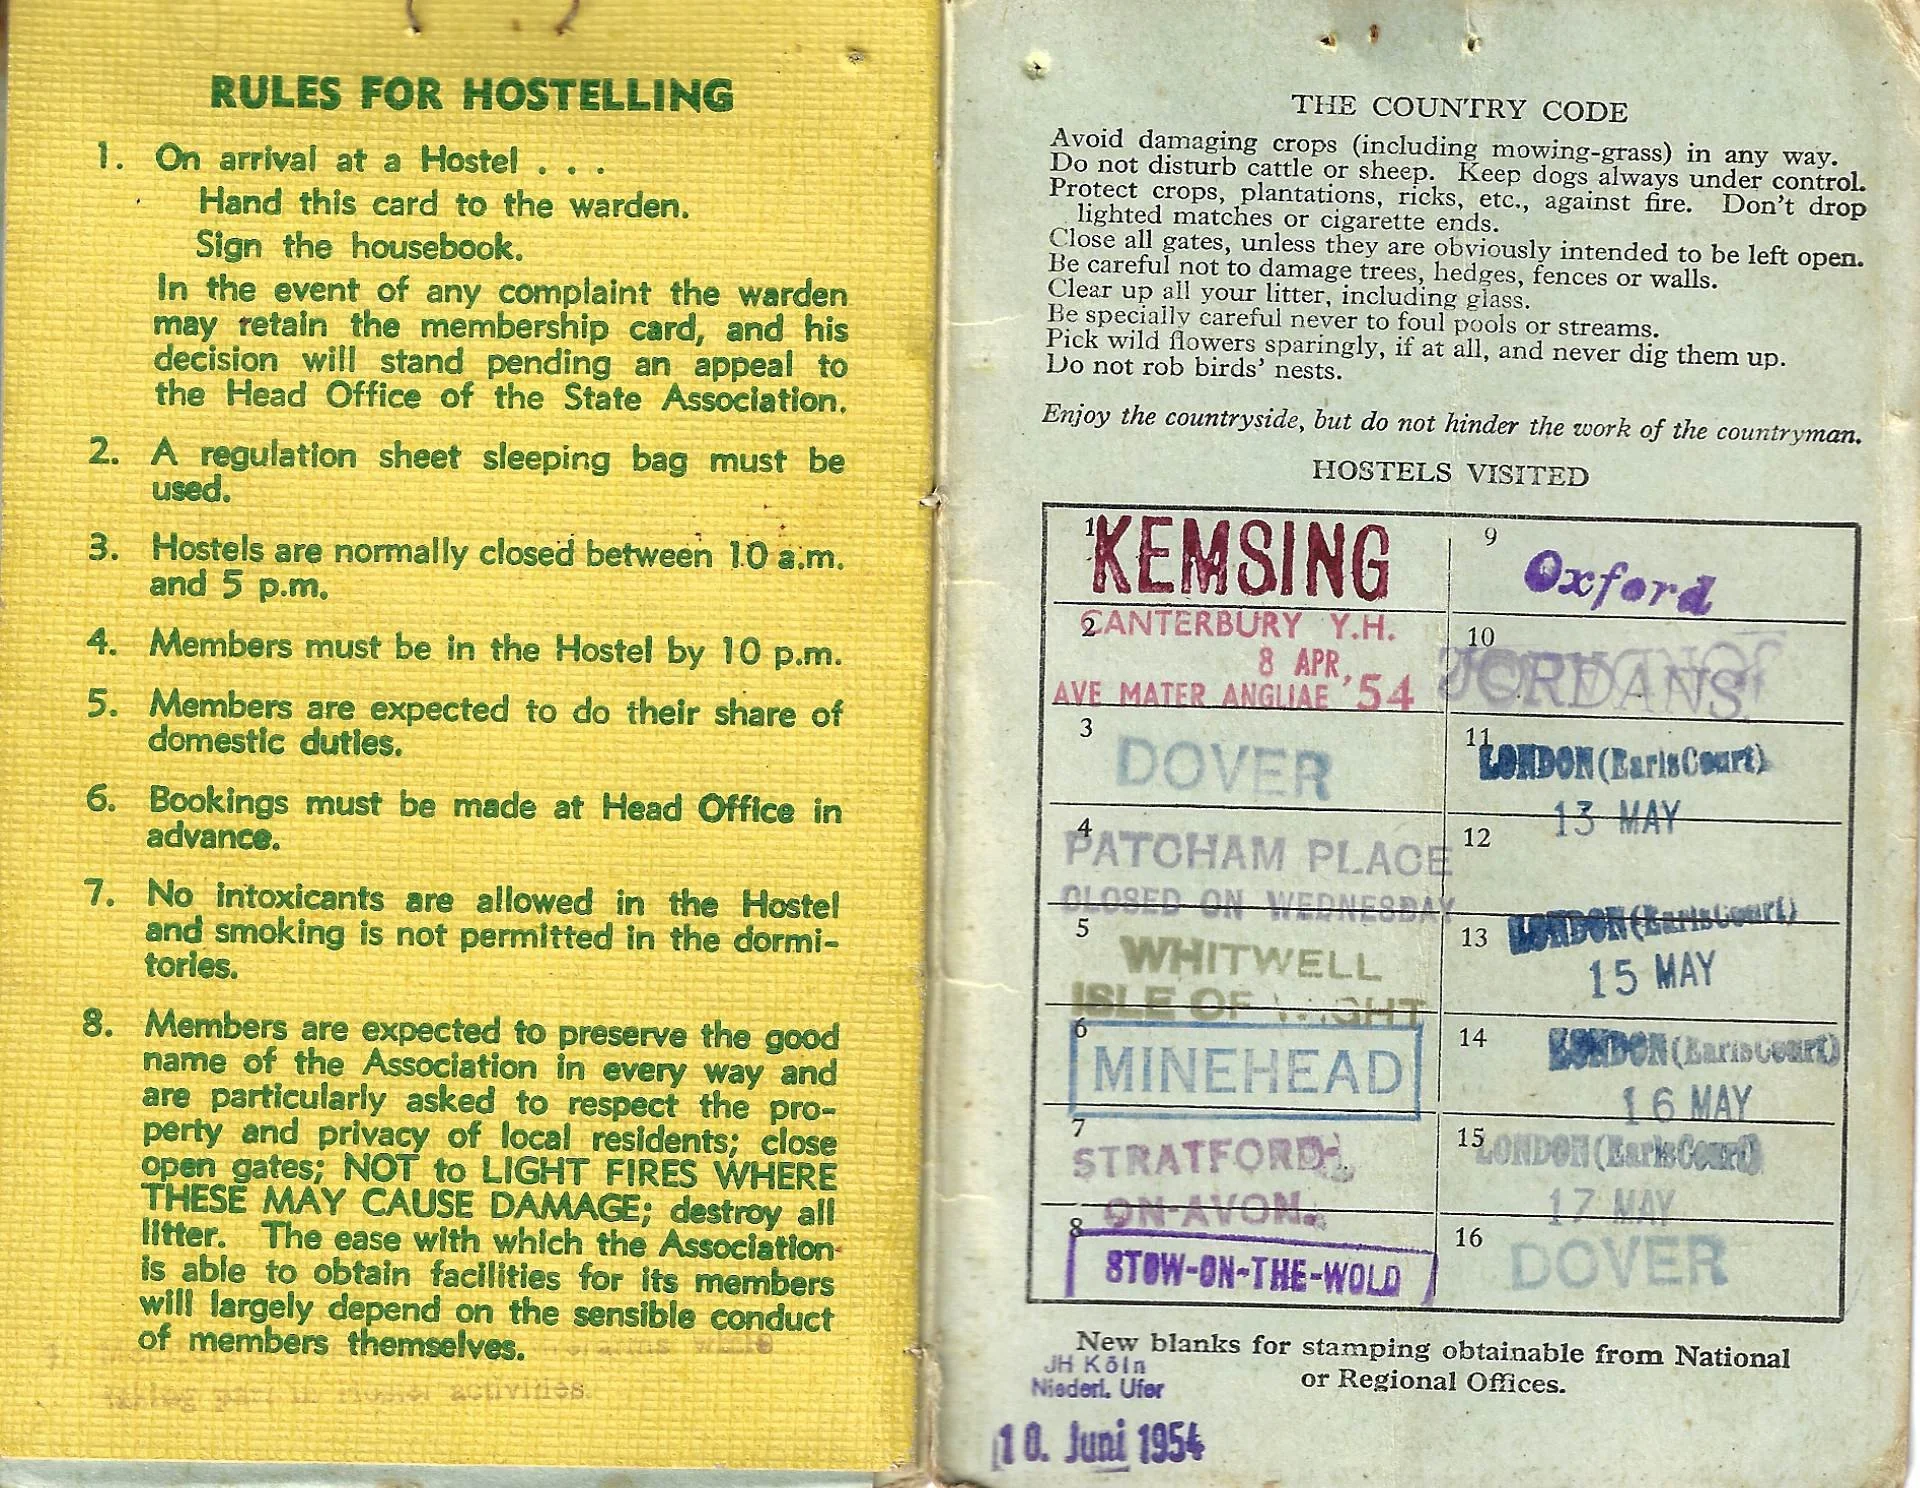 RULES FOR HOSTELLING
1. On arrival at a Hostel . . .
Hand this card to the warden.
Sign the housebook.
In the event of any complaint the warden
may retain the membership card, and his
decision will stand pending an appeal to
the Head Office of the State Association.
2. A regulation sheet sleeping bag must be
used.
3. Hostels are normally closed between 10 a.m.
and 5 p.m.
4. Members must be in the Hostel by 10 p.m.
5. Members are expected to do their share of
domestic duties.
6. Bookings must be made at Head Office in
advance.
7. No intoxicants are allowed in the Hostel
and smoking is not permitted in the dormi-
tories.
8. Members are expected to preserve the good
name of the Association in every way and
are particularly asked to respect the pro-
perty and privacy of local residents; close
open gates; NOT to LIGHT FIRES WHERE
THESE MAY CAUSE DAMAGE; destroy all
litter. The ease with which the Association
is able to obtain facilities for its members
will largely depend on the sensible conduct
of members themselves.
part in Hostel activities.
THE COUNTRY CODE
Avoid damaging crops (including mowing-grass) in any way.
Do not disturb cattle or sheep. Keep dogs always under control.
Protect crops, plantations, ricks, etc., against fire. Don't drop
lighted matches or cigarette ends.
Close all gates, unless they are obviously intended to be left open.
Be careful not to damage trees, hedges, fences or walls.
Clear up all your litter, including glass.
Be specially careful never to foul pools or streams.
Pick wild flowers sparingly, if at all, and never dig them up.
Do not rob birds' nests.
Enjoy the countryside, but do not hinder the work of the countryman.
HOSTELS VISITED
1 KEMSING
2 CANTERBURY Y.H.
8 APR, '54
AVE MATER ANGLIAE
3 DOVER
4 PATCHAM PLACE
CLOSED ON WEDNESDAY
5 WHITWELL
ISLE OF WIGHT
6 MINEHEAD
7 STRATFORD-
ON-AVON.
8 STOW-ON-THE-WOLD
9 Oxford
10 JORDANS
11 LONDON (Earls Court)
13 MAY
12
13 LONDON (Earls Court)
15 MAY
14 LONDON (Earls Court)
16 MAY
15 LONDON (Earls Court)
17 MAY
16 DOVER
New blanks for stamping obtainable from National
or Regional Offices.
JH Köln
Niederl. Ufer
10. Juni 1954